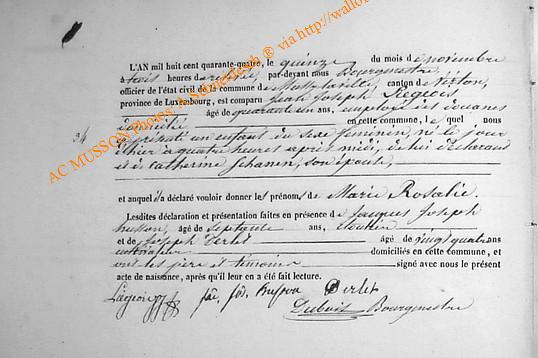 L'AN mil huit cent quarante-quatre, le quinze du mois de novembre
à trois heures de relevée, par-devant nous Bourgmestre
officier de l'état civil de la commune de canton de Virton,
province de Luxembourg, est comparu Jean Joseph Liegeois
âgé de quarante un ans, employé des douanes
domicilié en cette commune, le quel, nous
a présenté un enfant du sexe féminin, né le jour
d'hier à quatre heures après midi, de lui déclarant
et de Catherine Schanen, son épouse,
et auquel il a déclaré vouloir donner les prénoms de Marie Rosalie.
Lesdites déclaration et présentation faites en présence de Jacques Joseph
husson, âgé de septante ans, cloutier
et de Joseph Derlet âgé de vingt quatre ans
domiciliés en cette commune, et
ont les père et témoins signé avec nous le présent
acte de naissance, après qu'il leur en a été fait lecture.
Liegeois Jos. husson Derlet
Dubois Bourgmestre
AC MUSSON Photos: ® via http://wallo